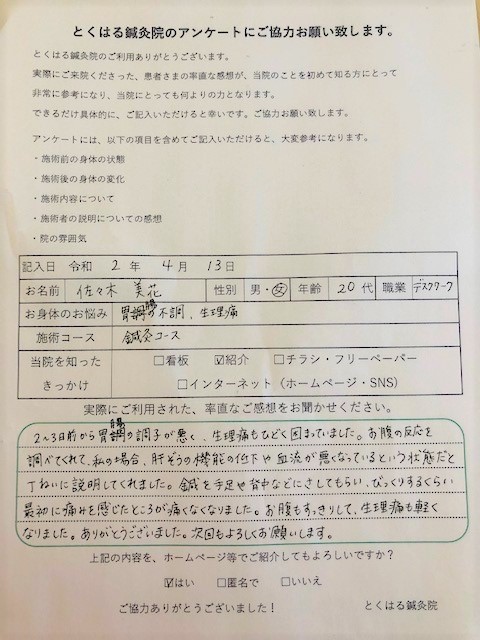 とくはる鍼灸院のアンケートにご協力お願い致します。
とくはる鍼灸院のご利用ありがとうございます。
実際にご来院くださった、患者さまの率直な感想が、当院のことを初めて知る方にとって
非常に参考になり、当院にとっても何よりの力となります。
できるだけ具体的に、ご記入いただけると幸いです。ご協力お願い致します。
アンケートには、以下の項目を含めてご記入いただけると、大変参考になります。
・施術前の身体の状態
・施術後の身体の変化
・施術内容について
・施術者の説明についての感想
・院の雰囲気
記入日 令和 2 年 4 月 13 日
お名前 佐々木 美花 性別 男・女 年齢 20代 職業 デスクワーク
お身体のお悩み 胃腸の不調、生理痛
施術コース 鍼灸コース
当院を知った □看板 ☑紹介 □チラシ・フリーペーパー
きっかけ □インターネット（ホームページ・SNS）
実際にご利用された、率直なご感想をお聞かせください。
2〜3日前から胃腸の調子が悪く、生理痛もひどく困まっていました。お腹の反応を
調べてくれて、私の場合、肝ぞうの機能の低下や血流が悪くなっているという状態だと
丁ねいに説明してくれました。鍼を手足や背中などにさしてもらい、びっくりするくらい
最初に痛みを感じたところが痛くなくなりました。お腹もすっきりして、生理痛も軽く
なりました。ありがとうございました。次回もよろしくお願いします。
上記の内容を、ホームページ等でご紹介してもよろしいですか？
☑はい □匿名で □いいえ
ご協力ありがとうございました！ とくはる鍼灸院